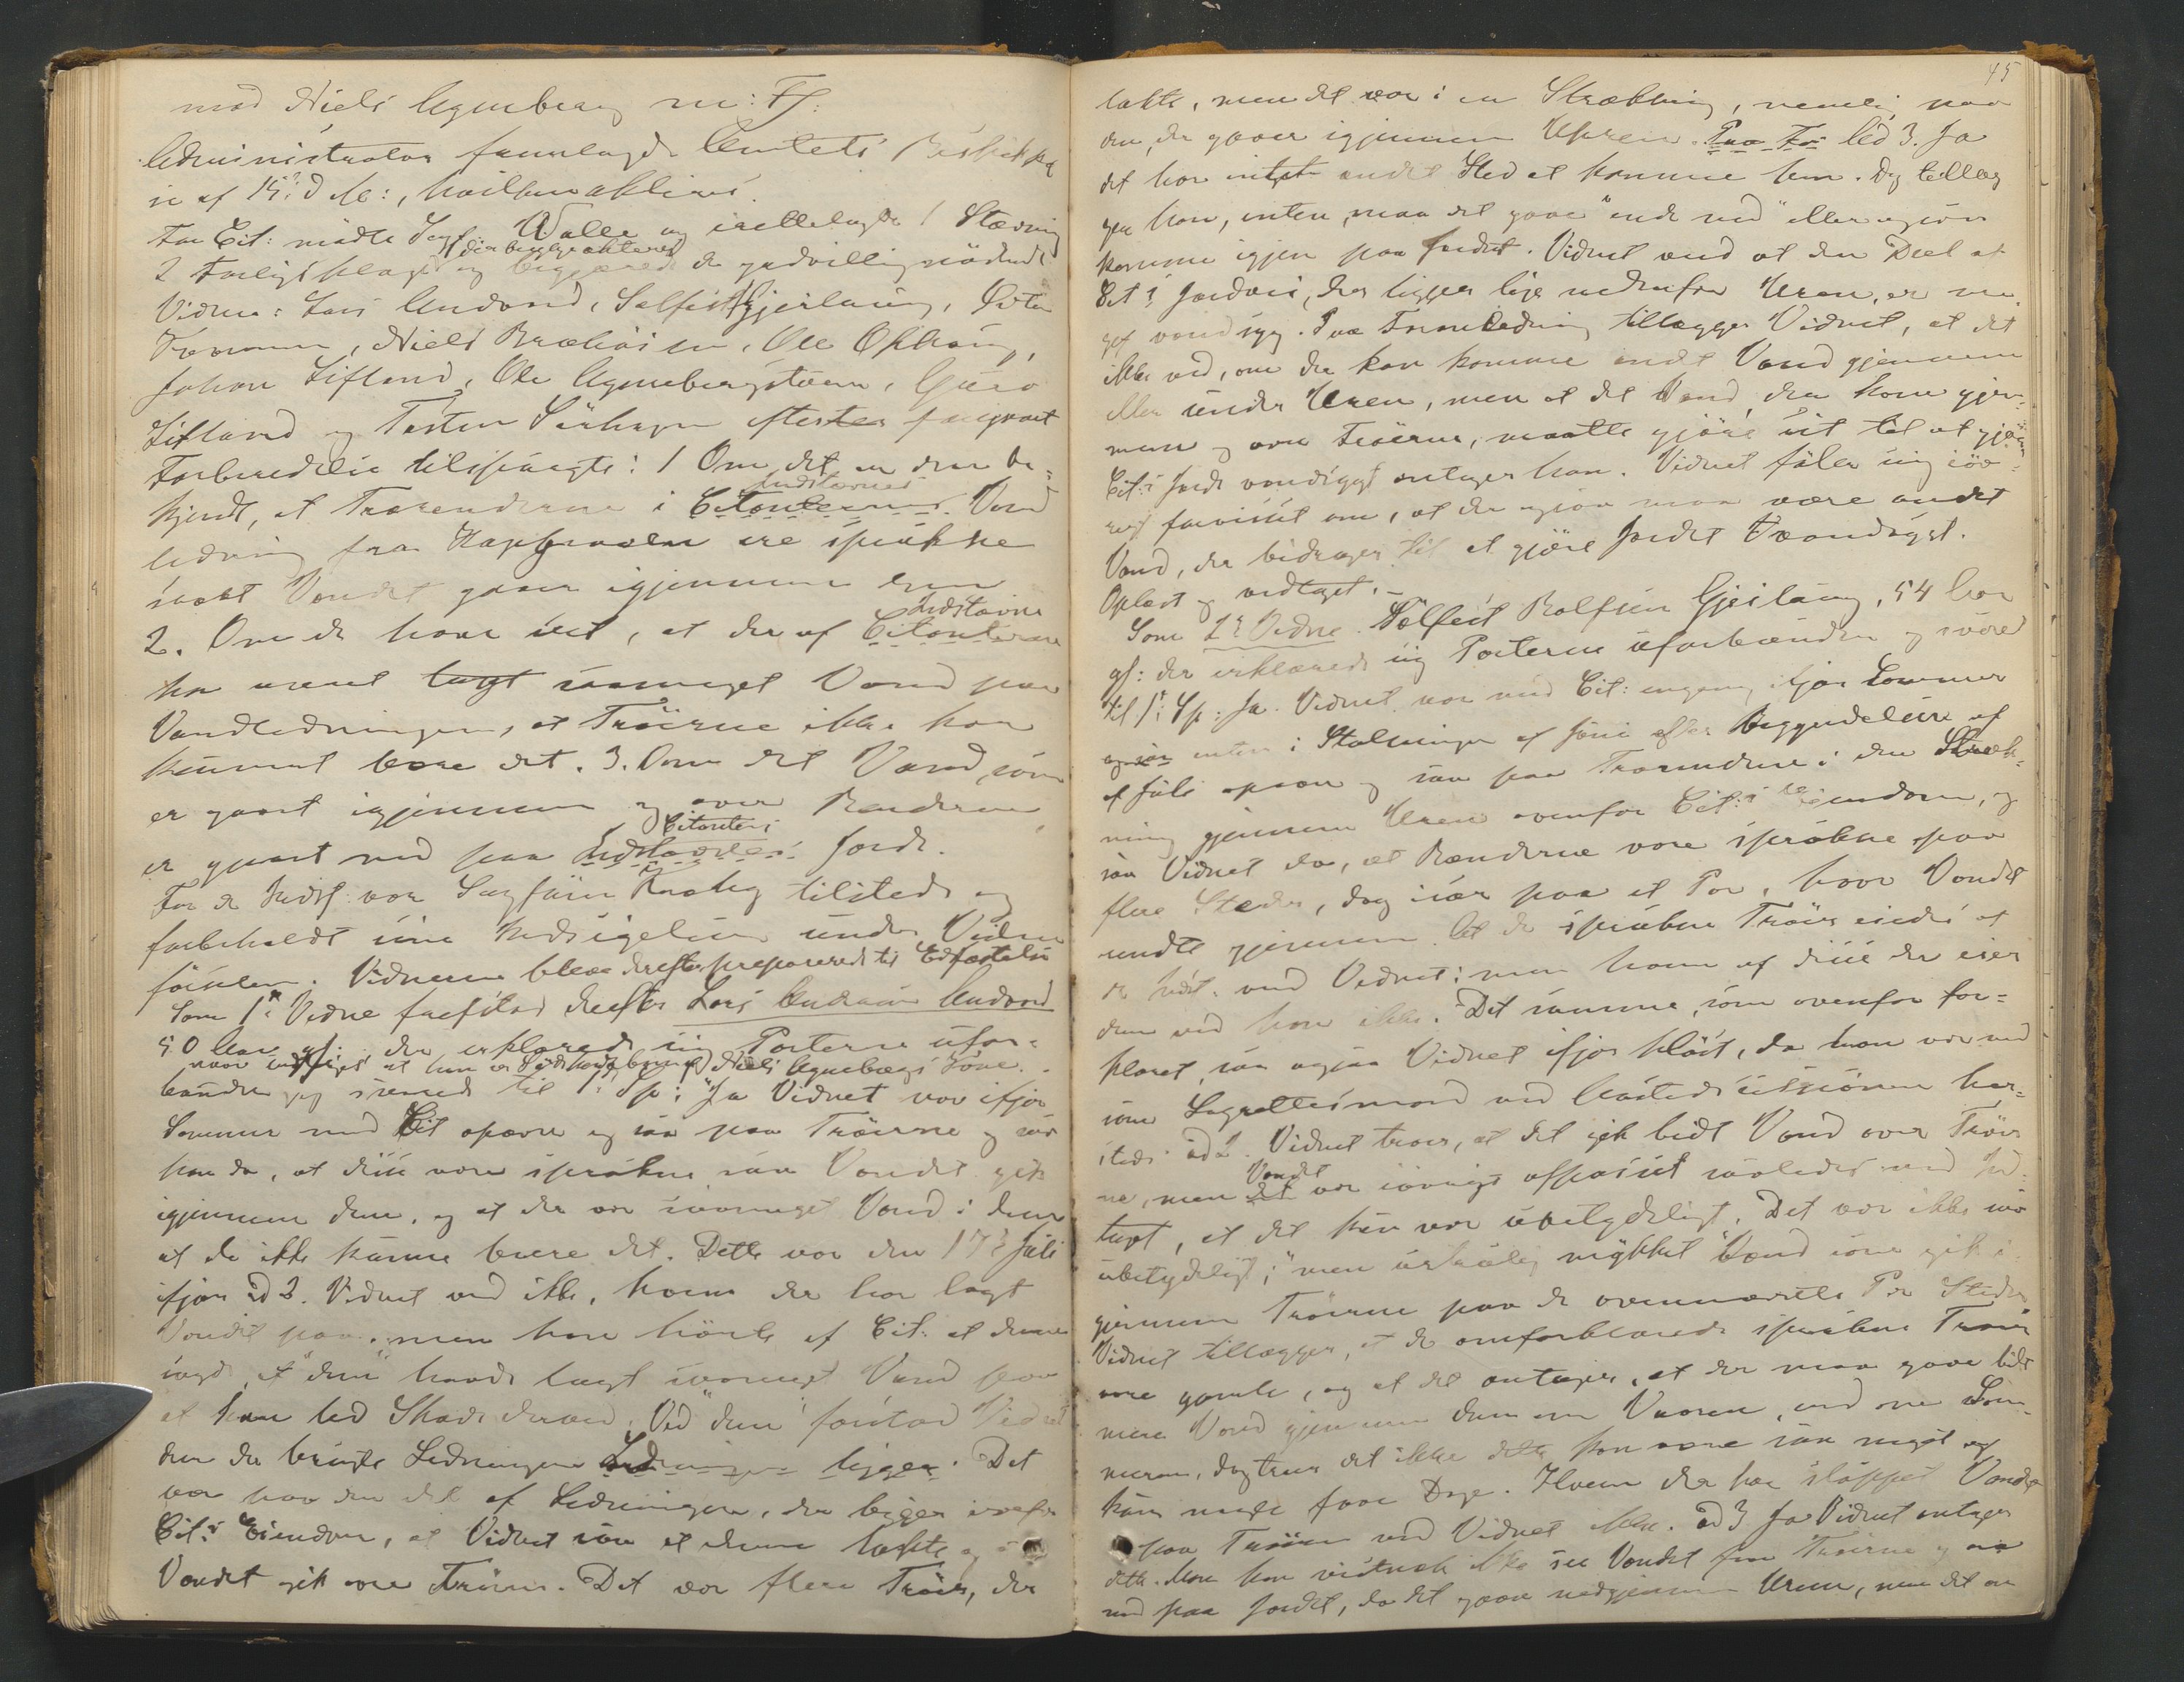 mod Niels Agneberg m: Fl:
Administrator fremlagde Amtets Beskikkel
se af 15: d M:, hvilken aflæses.
For Cit: mødte Sagf: Wolle og irettelagde 1 Stævning
2 Forligsklage der begge akteres og begjærede de godvillig mødende
Vidner: Lars Andvord, Sølfest Gjeilaug, Peter
Niels Brækøien, Ole Opkaug,
Johan Lifland, Ole Agnebergstuen, Guro
Lifland og Torsten Sørhagen efter foregaaet
Forberedelse tilspurgte: 1 Om det er dem be-
kjendt, at Trærenderne i Citantens Indstævnes Vand
ledning fra ere sprukne
saa at Vandet gaar igjennem dem
2. Om de have seet, at der af Citanterne Indstævnte
har været lagt saameget Vand paa
Vandledningen, at Tröerne ikke har
kunnet bære det. 3. Om det Vand, som
er gaaet igjennem og over Renderne,
er gaaet ned paa Indstævntes Citantens Jorde.
For de Indst: var Sagfører tilstede og
forbeholdt sine Indsigelser under Vidne
førselen. Vidnerne bleve derefter præparerede til Edfæstelse
Som 1st Vidne fremstod derefter Lars Andvord
50 Aar gl: der erklærede sig Parterne ufor-
naar undtages at han er Søskendebarn af Niels Agnebergs Kone.
bunden og svarede til 1: Sp: "Ja Vidnet var ifjor
Sommer med Cit opover og saa paa Tröerne og saa
han da, at disse vare sprukne saa Vandet gik
igjennem dem, og at der var saameget Vand i dem
at de ikke kunne bære det. Dette var den 17: Juli
ifjor ad 2. Vidnet ved ikke, hvem der har lagt
Vandet paa, men han hørte af Cit: at denne
sagde, at "dem" havde lagt saameget Vand paa
at han led Skade derved, Ved "dem" forstod Vidnet
dem der brugte Ledningen Ledningen ligger. Det
var paa den del af Ledningen, der ligger ovenfor
Cit:s Eiendom, at Vidnet saa at denne lækte og at
Vandet gik over Tröerne. Det var flere Tröer, der
45
lækte, men det var i en Strækning, nemlig paa
den, der gaaer igjennem Uhren. Paa Fo: led 3. Ja
det har intet andet Sted at komme hen. Dog tillæg
ger han, enten maa det gaae "ende ned" eller ogsaa
komme igjen paa Jordet. Vidnet ved at den Deel af
Cit:s Jordvei, der ligger lige nedenfor Uren, er me
get vandsyg. Paa Foranledning tillægger Vidnet, at det
ikke ved, om der kan komme andet Vand gjennem
eller under Uren, men at det Vand, der kom gjen-
nem og over Tröerne, maatte gjöre sit til at gjöre
Cit:s Jorde vandsygt antager han. Vidnet føler sig iøv-
rigt forvisset om, at der ogsaa maa være andet
Vand, der bidrager til at gjöre Jordet vandsygt.
Oplæst og vedtaget.-
Som 2: Vidne Sølfest Rolfsen Gjeilaug, 54 Aar
gl: der erklærede sig Parterne uforbunden og svarede
til 1: Sp: Ja. Vidnet var med Cit: engang ifjor Sommer
enten i Slutningen af Juni eller Begyndelsen af
af Juli opover og saa paa Trærenderne i den Stræk-
ning gjennem Uren ovenfor Cit:s Eiendom, og
saa Vidnet da, at Renderne vare sprukne paa
flere Steder, dog især paa et Par, hvor Vandet
rendte gjennem. At de sprukne Tröer eiedes af
de Indst: ved Vidnet; men hvem af disse der eier
dem ved han ikke. Det samme, som ovenfor for-
klaret, saa ogsaa Vidnet ifjor høst, da han var med
som Lagrettesmand ved Aastedssessionen her-
steds. ad 2. Vidnet troer, at det gik lidt Vand over Tröer
ne, men det Vandet var iøvrigt afpasset saaledes ved Ind-
taget, at det kun var ubetydeligt. Det var ikke saa
ubetydeligt; men urkelig mykket Vand som gik i
gjennem Tröerne paa de ovennævnte Par Steder
Vidnet tillægger, at de omforklarede sprukne Tröer
vare gamle, og at det antager, at der maa gaae lidt
mere Vand gjennem dem om Vaaren, end om Som-
meren, dog troer det ikke dette kan være saa meget og
kun nogle faae Dage. Hvem der har sluppet Vandet
paa Tröerne ved Vidnet ikke. ad 3 Ja Vidnet antager
dette. Man kan vistnok ikke see Vandet fra Tröerne og
ned paa Jordet, da det gaar nedgjennem Uren, men det er